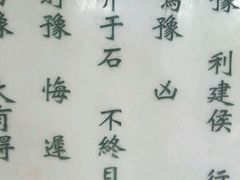 豫 利建侯 行
鳴豫 凶
介于石 不終日
豫 悔 遲
豫 大有得